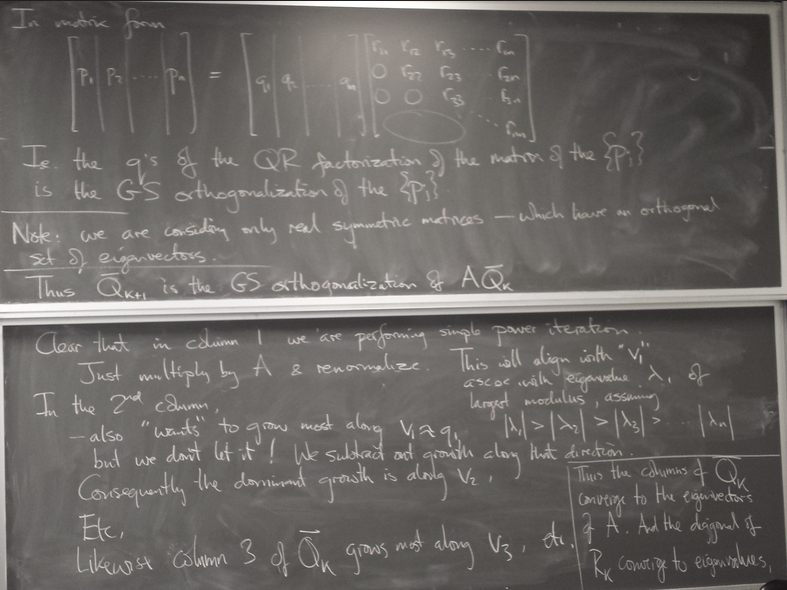 In matrix form
[ p₁ | p₂ | ..... | pₙ ] = [ q₁ | q₂ | ..... | qₙ ] [ r₁₁ r₁₂ r₁₃ ..... r₁ₙ
0 r₂₂ r₂₃ ..... r₂ₙ
0 0 r₃₃ ..... r₃ₙ
..... rₙₙ ]
Ie. the q's of the QR factorization of the matrix of the {pᵢ}
is the GS orthogonalization of the {pᵢ}
Note: we are considing only real symmetric matrices — which have an orthogonal
set of eigenvectors.
Thus Q̄ₖ₊₁ is the GS orthogonalization of AQ̄ₖ
Clear that in column 1 we are performing simple power iteration.
Just multiply by A & renormalize. This will align with "v₁"
assoc with eigenvalue λ₁ of
largest modulus, assuming
|λ₁| > |λ₂| > |λ₃| > ..... |λₙ|
In the 2nd column,
– also "wants" to grow most along v₁ ≈ q₁
but we don't let it! We subtract out growth along that direction.
Consequently the dominant growth is along v₂.
Etc.
Likewise column 3 of Q̄ₖ grows most along v₃, etc.
Thus the columns of Q̄ₖ
converge to the eigenvectors
of A. And the diagonal of
Rₖ converge to eigenvalues.